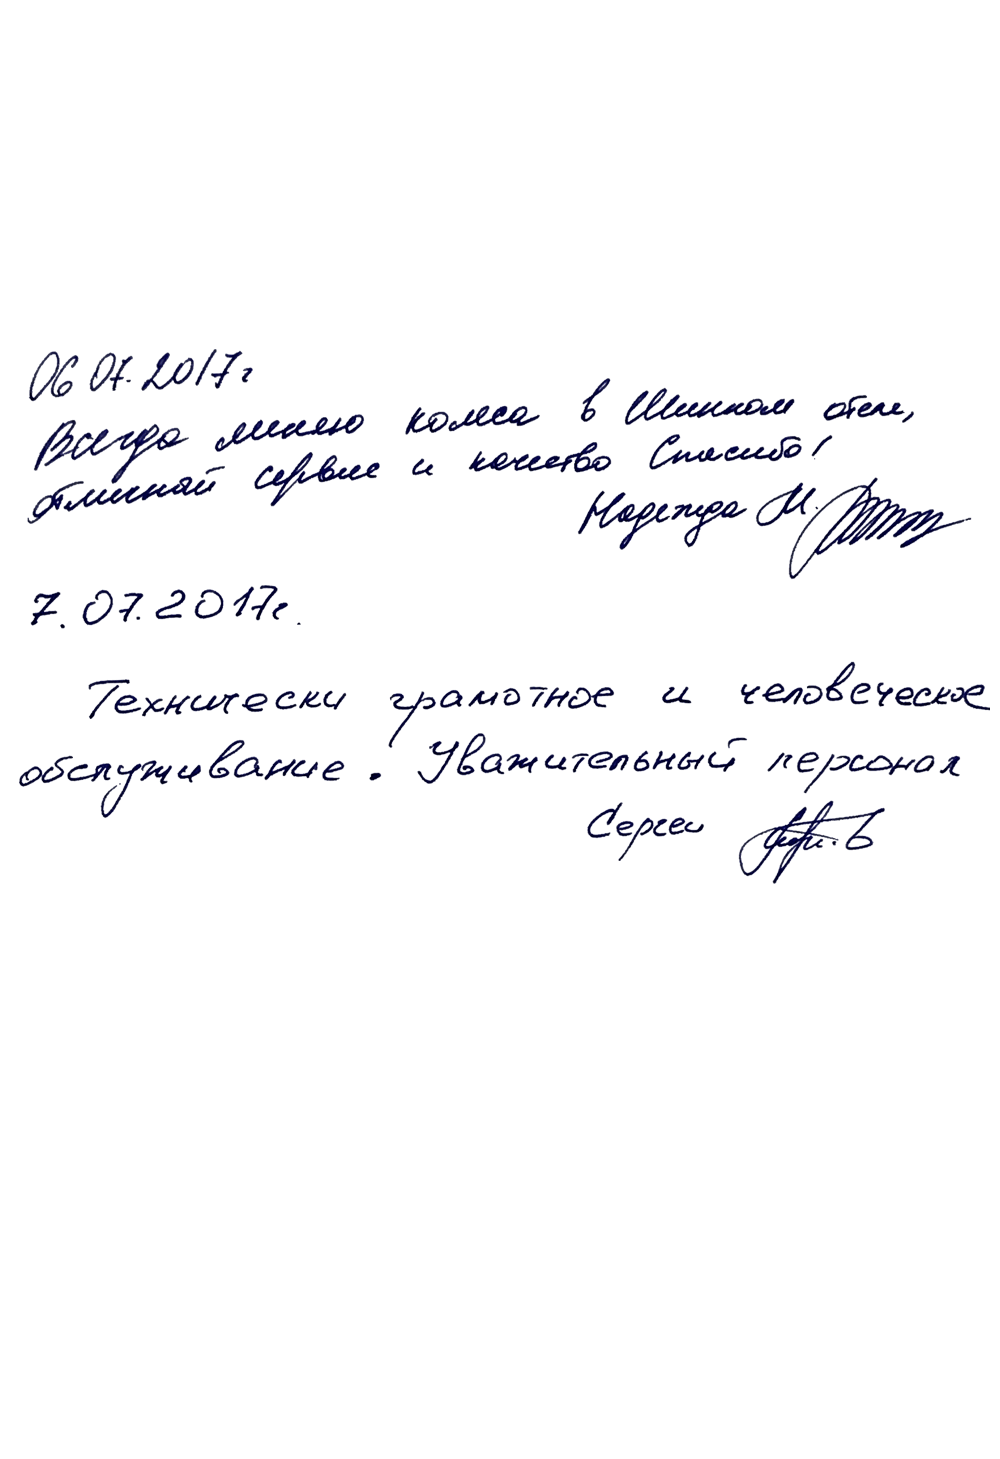 06 07.2017г
Всегда меняю колеса в Шинном отеле,
отличный сервис и качество Спасибо!
Надежда М.
7.07.2017г.
Технически грамотное и человеческое
обслуживание. Уважительный персонал
Сергей